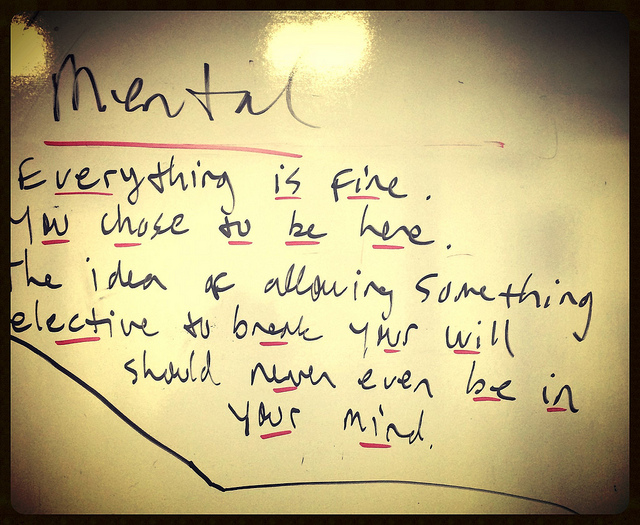 Mental
Everything is fine.
You chose to be here.
The idea of allowing something
elective to break your will
should never even be in
your mind.